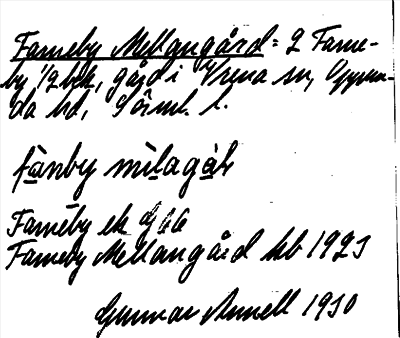 Fameby Mellangård = 2 Fame-
by 1/2 bek, gård i Vrena sn, Oppun-
da hd, Söml. l.
fànby mìlagàḷ
Famēby ek G66
Fameby Mellangård kb 1925
Gunnar Annell 1930